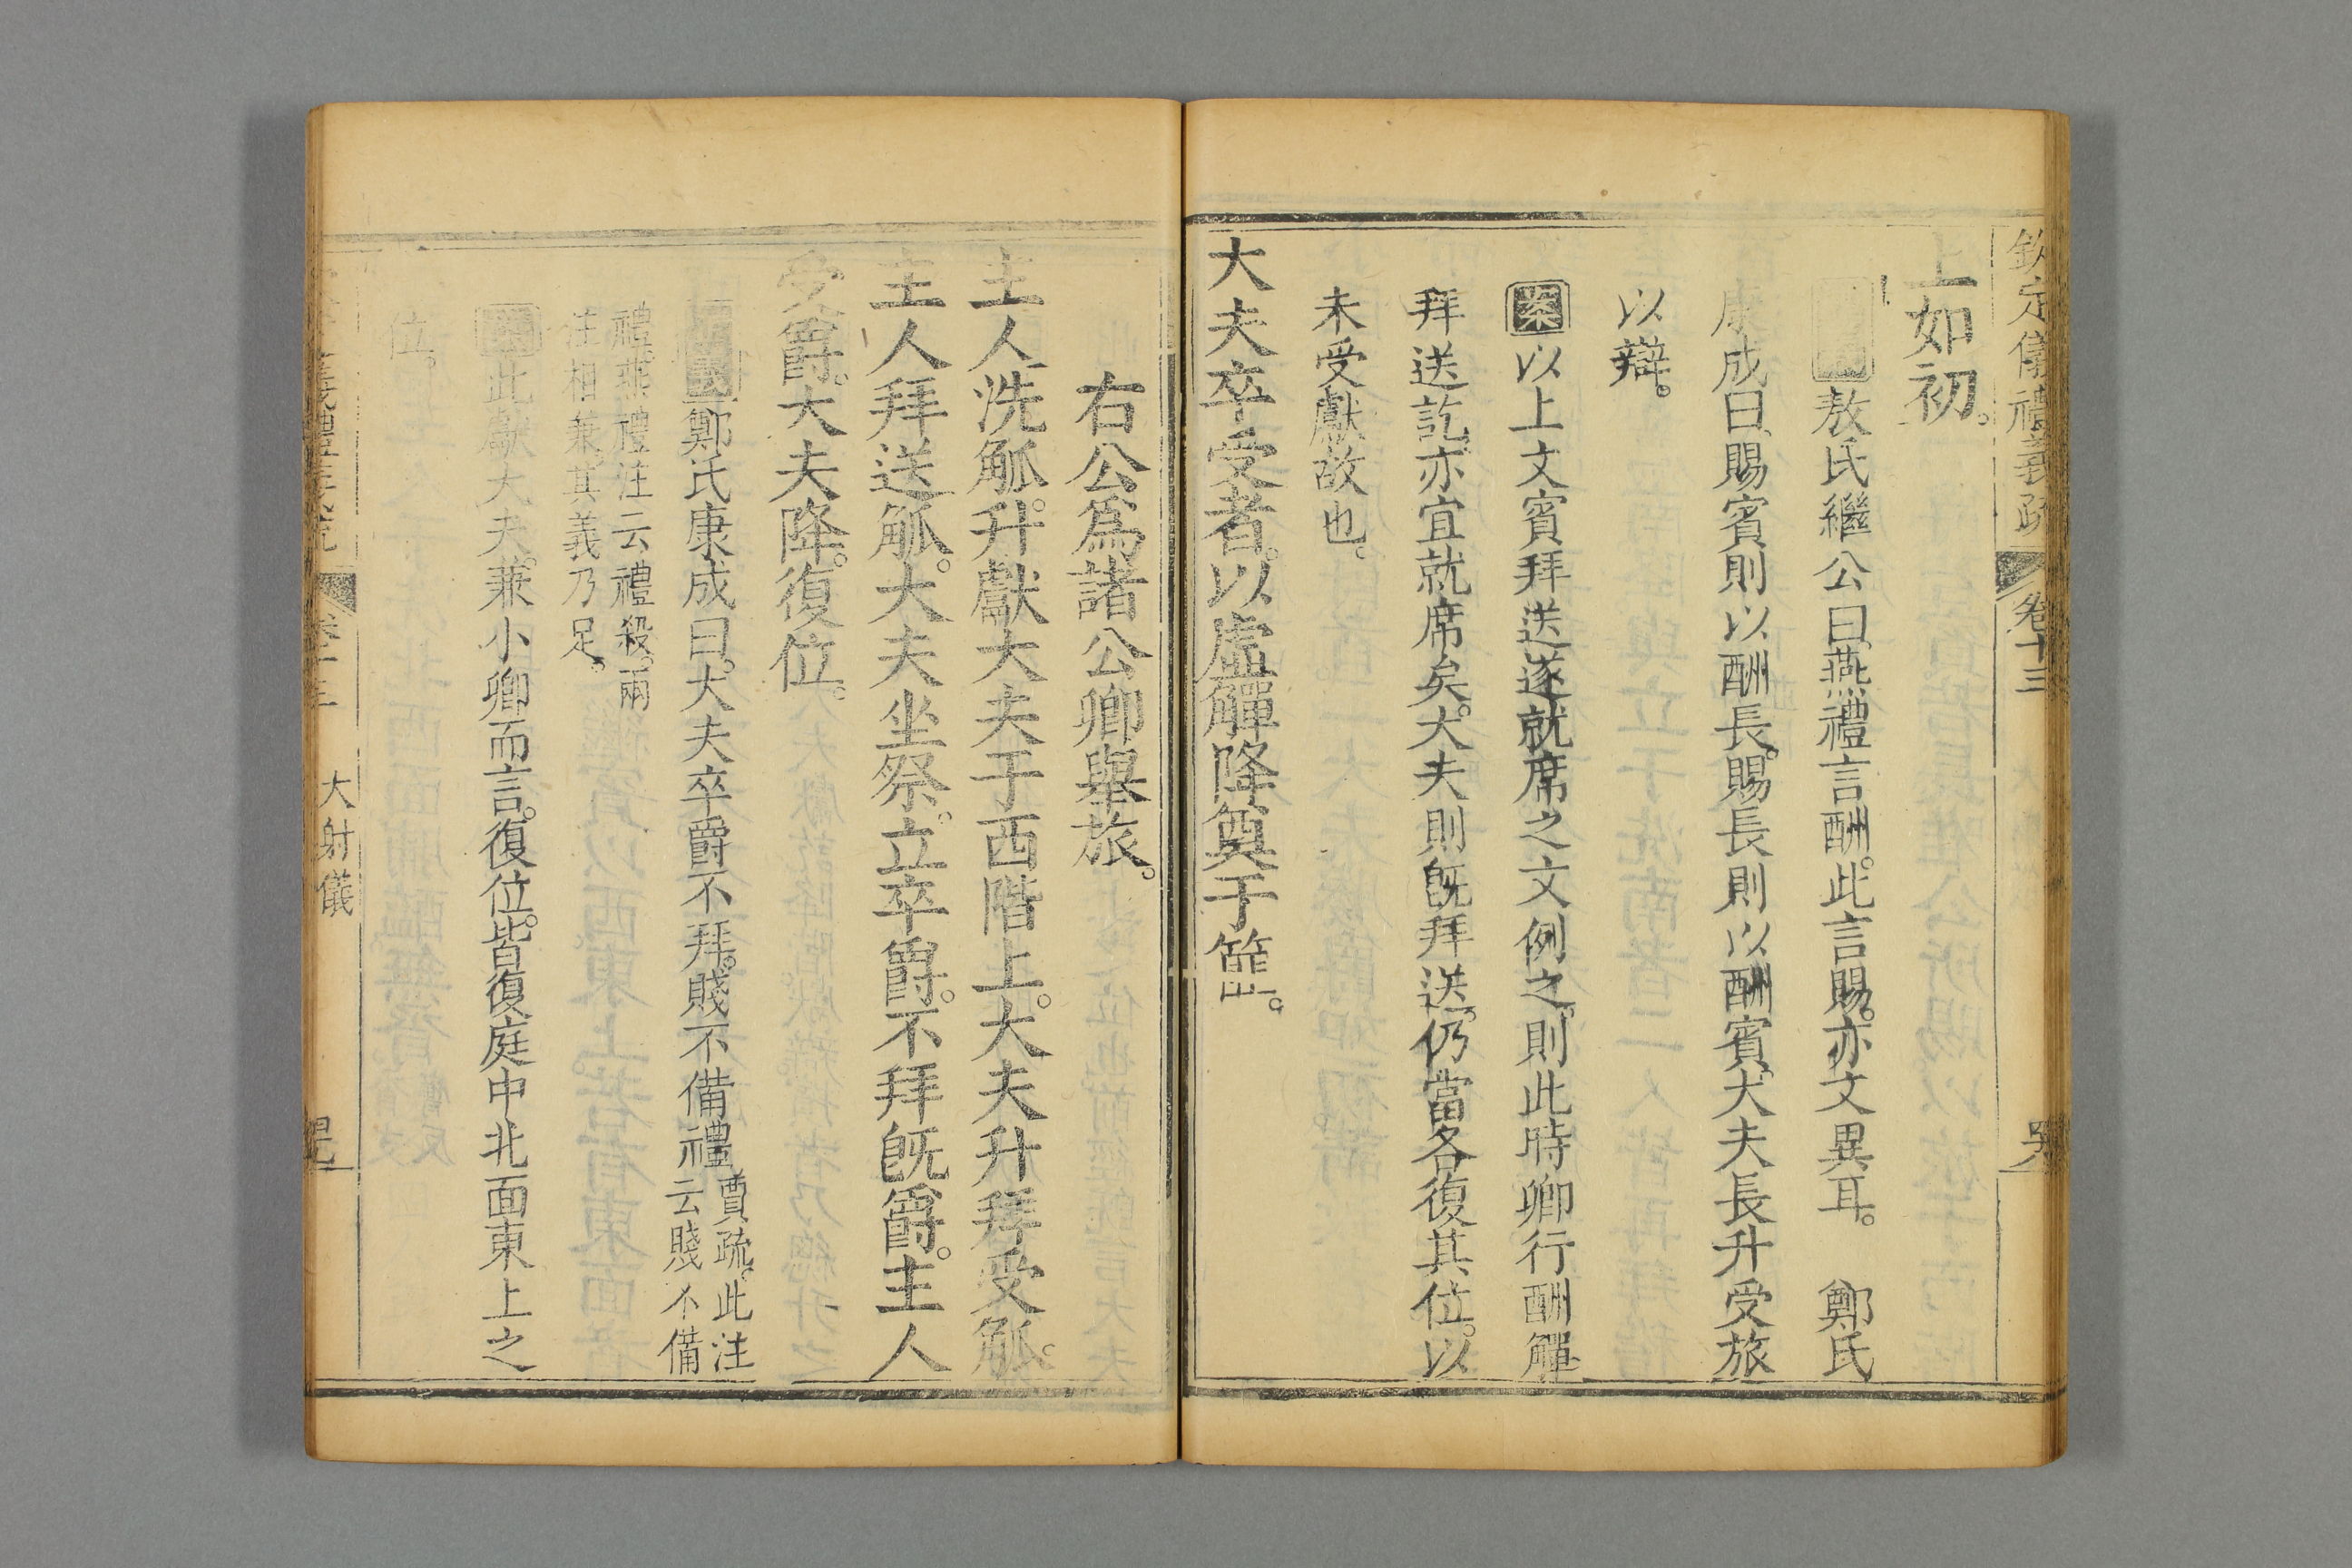 欽定儀禮義疏 卷十三
上如初。
敖氏繼公曰燕禮言酬。此言賜。亦文異耳。 鄭氏
康成曰賜賓則以酬長。賜長則以酬賓。大夫長升受旅
以辯。
案以上文賓拜送遂就席之文例之。則此時卿行酬觶
拜送訖。亦宜就席矣。大夫則旣拜送。仍當各復其位。以
未受獻故也。
大夫卒受者。以虛觶降奠于篚。
右公爲諸公卿舉旅。
主人洗觚。升獻大夫于西階上。大夫升拜受觚。
主人拜送觚。大夫坐祭。立卒爵。不拜旣爵。主人
受爵。大夫降。復位。
鄭氏康成曰。大夫卒爵不拜。賤不備禮
賈疏。此注
云賤不備
禮。燕禮注云禮殺。兩
注相兼。其義乃足。
案此獻大夫。兼小卿而言。復位。皆復庭中北面東上之
位。
大射儀